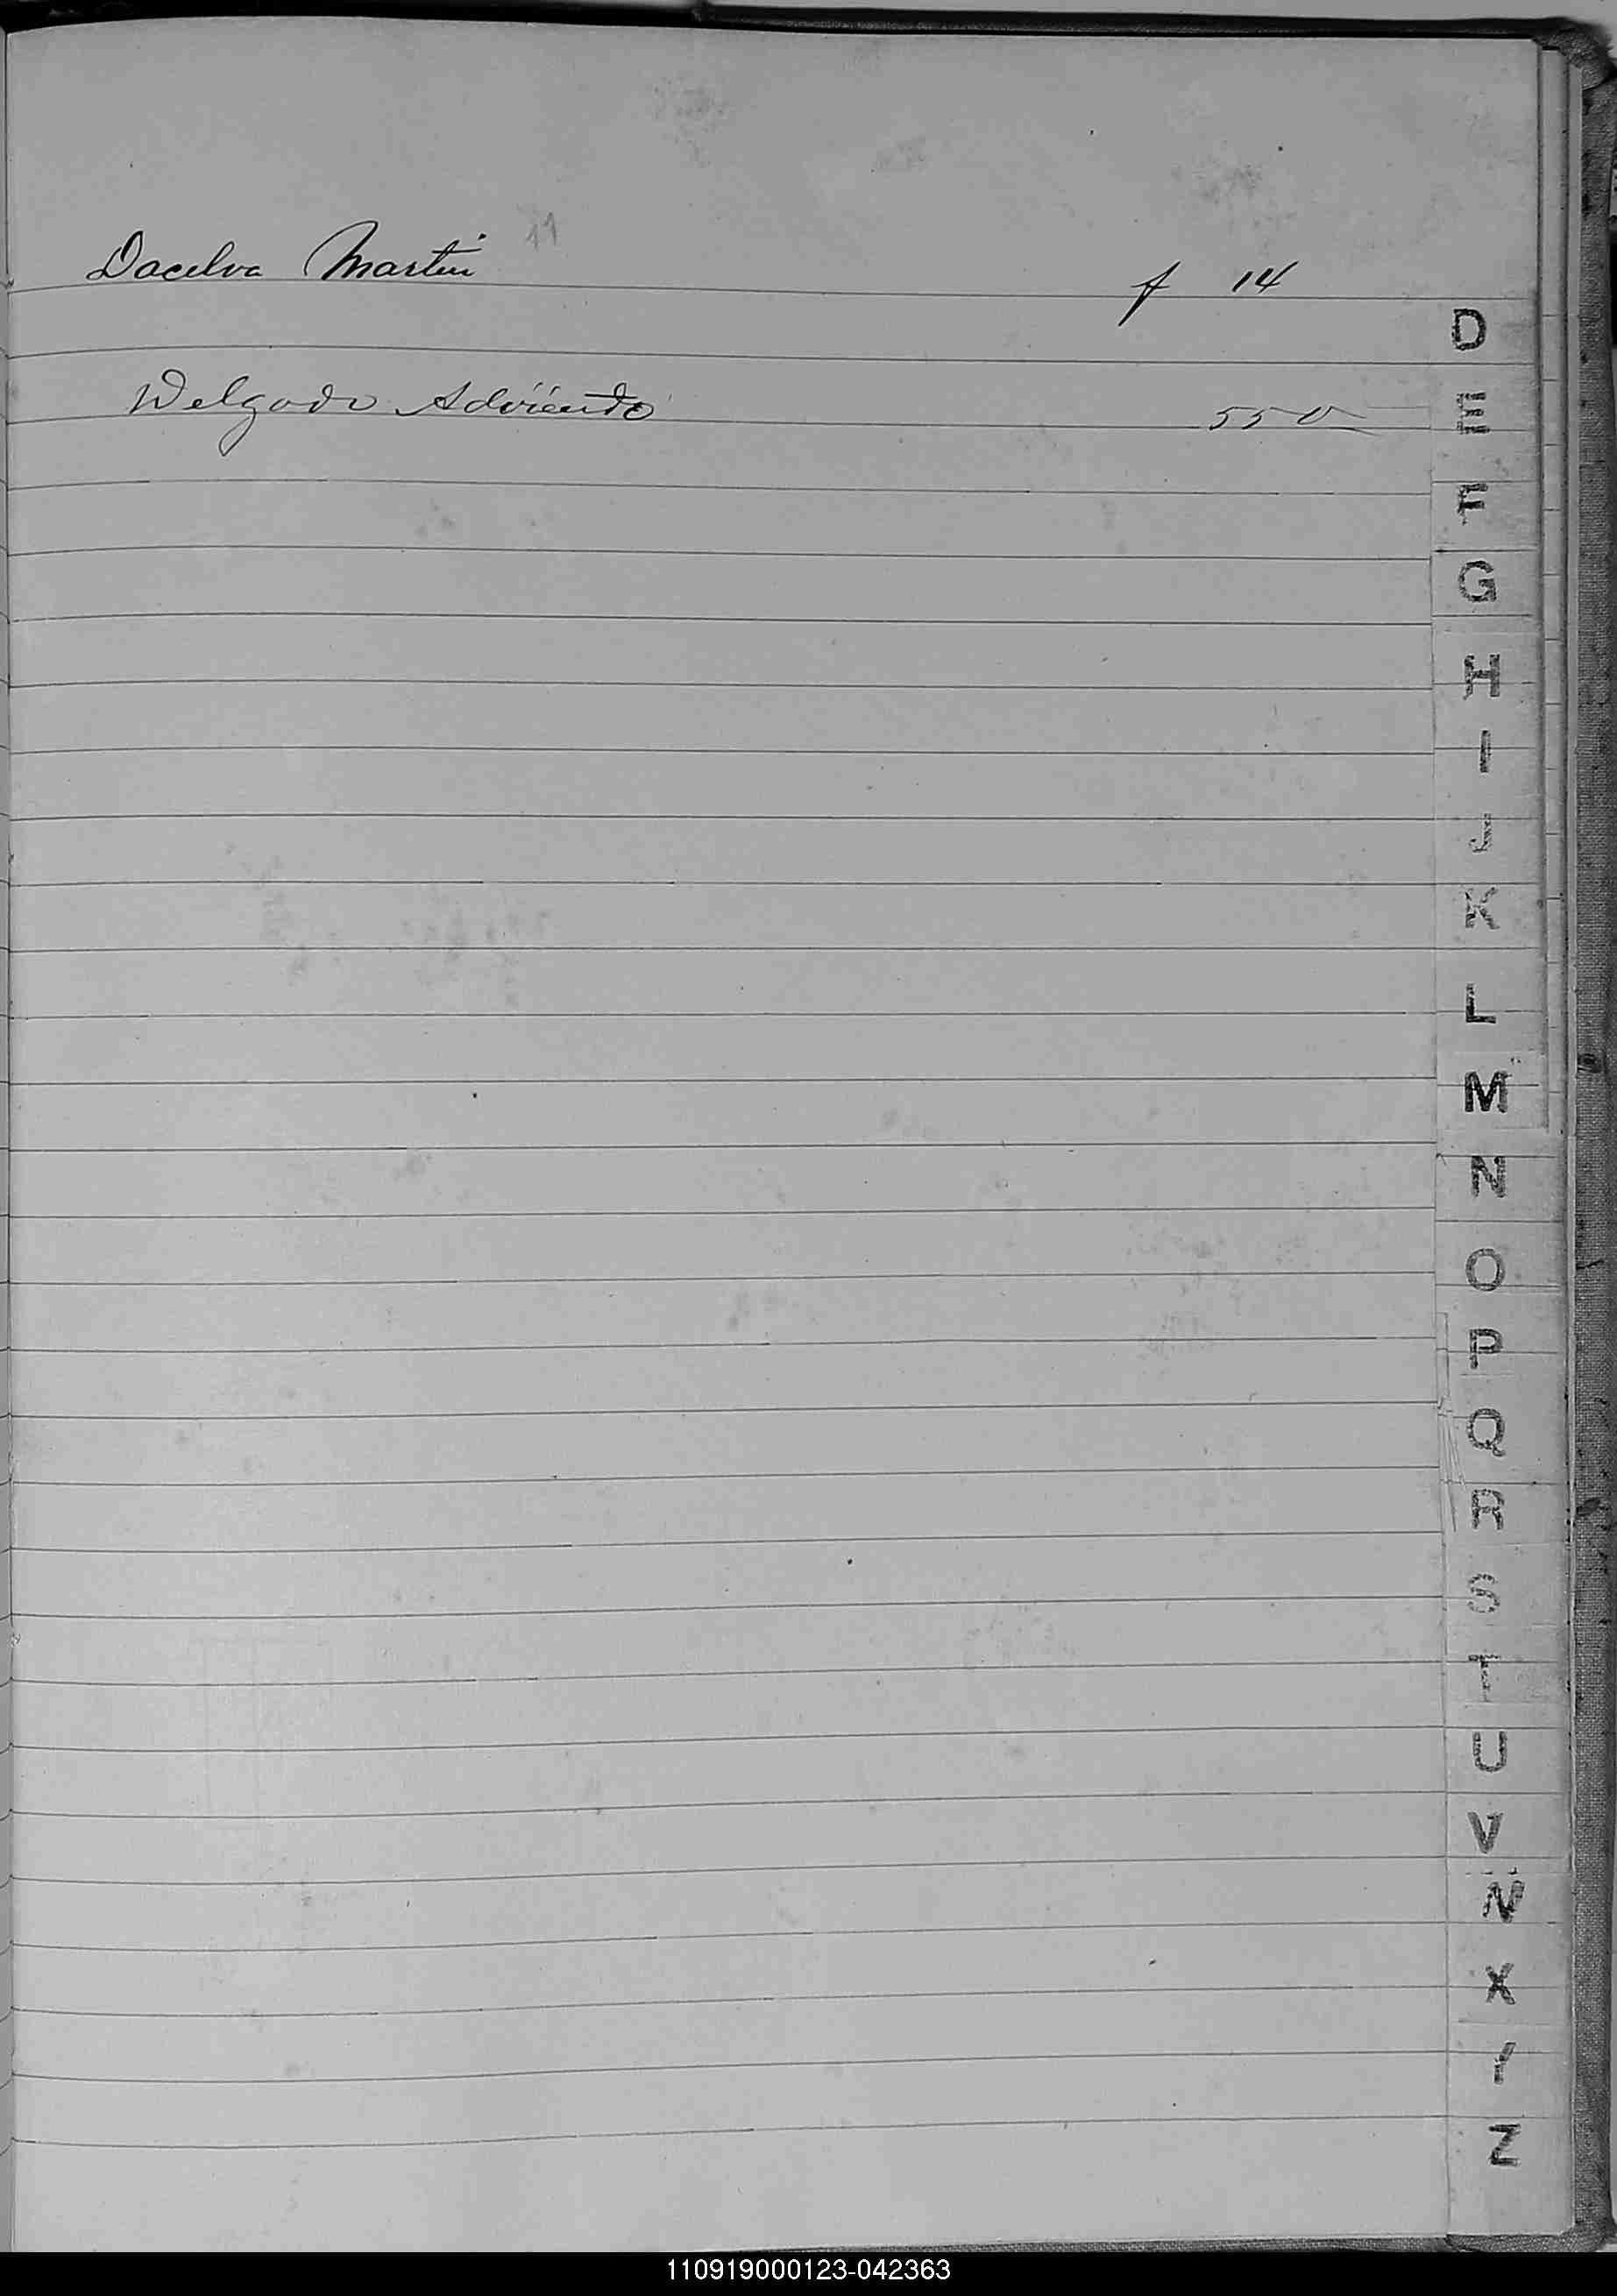 11
Dacelva Martin f 14
D
Delgado Adviento 550
E
F
G
H
I
J
K
L
M
N
O
P
Q
R
S
T
U
V
W
X
Y
Z
110919000123-042363